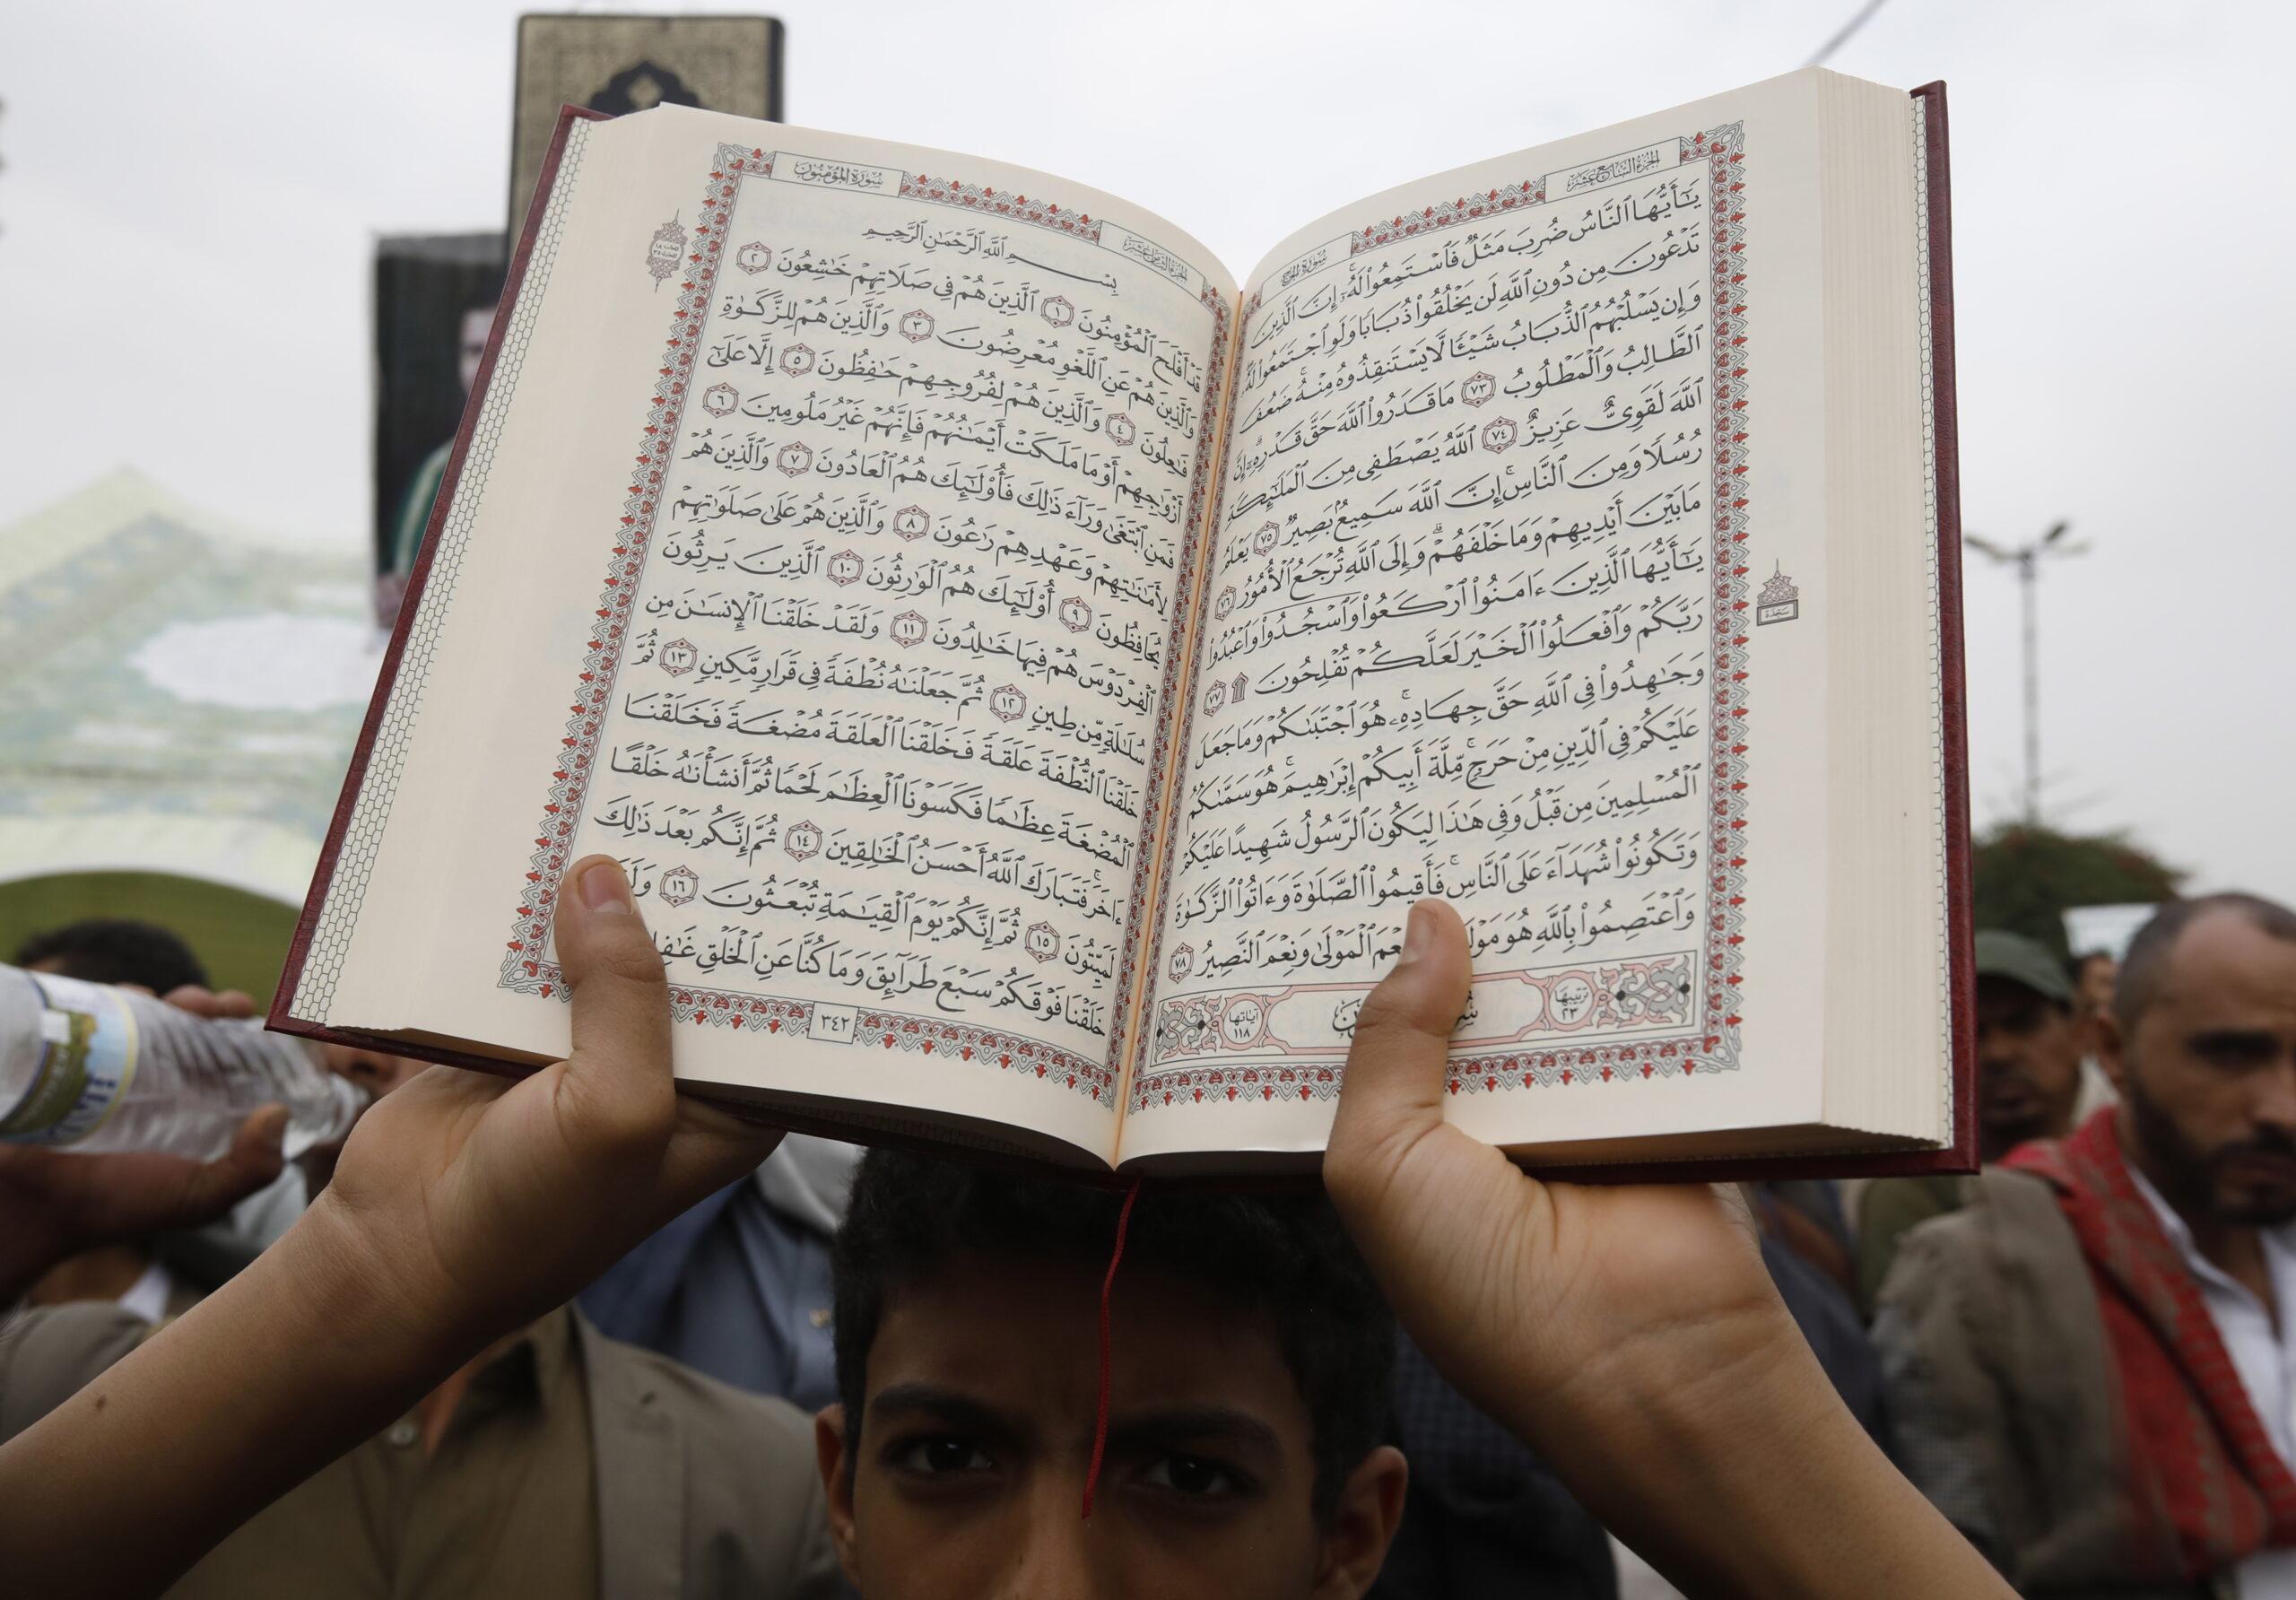 الجزء السابع عشر
سورة الحج
يَـٰٓأَيُّهَا ٱلنَّاسُ ضُرِبَ مَثَلٌ فَٱسْتَمِعُوا۟ لَهُۥٓ ۚ إِنَّ ٱلَّذِينَ
تَدْعُونَ مِن دُونِ ٱللَّهِ لَن يَخْلُقُوا۟ ذُبَابًا وَلَوِ ٱجْتَمَعُوا۟ لَهُۥ ۖ
وَإِن يَسْلُبْهُمُ ٱلذُّبَابُ شَيْـًٔا لَّا يَسْتَنقِذُوهُ مِنْهُ ۚ ضَعُفَ
ٱلطَّالِبُ وَٱلْمَطْلُوبُ ٧٣ مَا قَدَرُوا۟ ٱللَّهَ حَقَّ قَدْرِهِۦٓ ۗ إِنَّ
ٱللَّهَ لَقَوِىٌّ عَزِيزٌ ٧٤ ٱللَّهُ يَصْطَفِى مِنَ ٱلْمَلَـٰٓئِكَةِ
رُسُلًا وَمِنَ ٱلنَّاسِ ۚ إِنَّ ٱللَّهَ سَمِيعٌۢ بَصِيرٌ ٧٥ يَعْلَمُ
مَا بَيْنَ أَيْدِيهِمْ وَمَا خَلْفَهُمْ ۗ وَإِلَى ٱللَّهِ تُرْجَعُ ٱلْأُمُورُ ٧٦
يَـٰٓأَيُّهَا ٱلَّذِينَ ءَامَنُوا۟ ٱرْكَعُوا۟ وَٱسْجُدُوا۟ وَٱعْبُدُوا۟
رَبَّكُمْ وَٱفْعَلُوا۟ ٱلْخَيْرَ لَعَلَّكُمْ تُفْلِحُونَ ۩ ٧٧
وَجَـٰهِدُوا۟ فِى ٱللَّهِ حَقَّ جِهَادِهِۦ ۚ هُوَ ٱجْتَبَىٰكُمْ وَمَا جَعَلَ
عَلَيْكُمْ فِى ٱلدِّينِ مِنْ حَرَجٍ ۚ مِّلَّةَ أَبِيكُمْ إِبْرَٰهِيمَ ۚ هُوَ سَمَّىٰكُمُ
ٱلْمُسْلِمِينَ مِن قَبْلُ وَفِى هَـٰذَا لِيَكُونَ ٱلرَّسُولُ شَهِيدًا عَلَيْكُمْ
وَتَكُونُوا۟ شُهَدَآءَ عَلَى ٱلنَّاسِ ۚ فَأَقِيمُوا۟ ٱلصَّلَوٰةَ وَءَاتُوا۟ ٱلزَّكَوٰةَ
وَٱعْتَصِمُوا۟ بِٱللَّهِ هُوَ ٱلْمَوْلَىٰ وَنِعْمَ ٱلنَّصِيرُ ٧٨
ترتيبها ٢٣
آياتها ١١٨
سجدة
سورة المؤمنون
الجزء الثامن عشر
بِسْمِ ٱللَّهِ ٱلرَّحْمَـٰنِ ٱلرَّحِيمِ
قَدْ أَفْلَحَ ٱلْمُؤْمِنُونَ ١ ٱلَّذِينَ هُمْ فِى صَلَاتِهِمْ خَـٰشِعُونَ ٢
وَٱلَّذِينَ هُمْ عَنِ ٱللَّغْوِ مُعْرِضُونَ ٣ وَٱلَّذِينَ هُمْ لِلزَّكَوٰةِ
فَـٰعِلُونَ ٤ وَٱلَّذِينَ هُمْ لِفُرُوجِهِمْ حَـٰفِظُونَ ٥ إِلَّا عَلَىٰٓ
أَزْوَٰجِهِمْ أَوْ مَا مَلَكَتْ أَيْمَـٰنُهُمْ فَإِنَّهُمْ غَيْرُ مَلُومِينَ ٦
فَمَنِ ٱبْتَغَىٰ وَرَآءَ ذَٰلِكَ فَأُو۟لَـٰٓئِكَ هُمُ ٱلْعَادُونَ ٧ وَٱلَّذِينَ هُمْ
لِأَمَـٰنَـٰتِهِمْ وَعَهْدِهِمْ رَٰعُونَ ٨ وَٱلَّذِينَ هُمْ عَلَىٰ صَلَوَٰتِهِمْ
يُحَافِظُونَ ٩ أُو۟لَـٰٓئِكَ هُمُ ٱلْوَٰرِثُونَ ١٠ ٱلَّذِينَ يَرِثُونَ
ٱلْفِرْدَوْسَ هُمْ فِيهَا خَـٰلِدُونَ ١١ وَلَقَدْ خَلَقْنَا ٱلْإِنسَـٰنَ مِن
سُلَـٰلَةٍ مِّن طِينٍ ١٢ ثُمَّ جَعَلْنَـٰهُ نُطْفَةً فِى قَرَارٍ مَّكِينٍ ١٣ ثُمَّ
خَلَقْنَا ٱلنُّطْفَةَ عَلَقَةً فَخَلَقْنَا ٱلْعَلَقَةَ مُضْغَةً فَخَلَقْنَا
ٱلْمُضْغَةَ عِظَـٰمًا فَكَسَوْنَا ٱلْعِظَـٰمَ لَحْمًا ثُمَّ أَنشَأْنَـٰهُ خَلْقًا
ءَاخَرَ ۚ فَتَبَارَكَ ٱللَّهُ أَحْسَنُ ٱلْخَـٰلِقِينَ ١٤ ثُمَّ إِنَّكُم بَعْدَ ذَٰلِكَ
لَمَيِّتُونَ ١٥ ثُمَّ إِنَّكُمْ يَوْمَ ٱلْقِيَـٰمَةِ تُبْعَثُونَ ١٦
خَلَقْنَا فَوْقَكُمْ سَبْعَ طَرَآئِقَ وَمَا كُنَّا عَنِ ٱلْخَلْقِ
٣٤٢